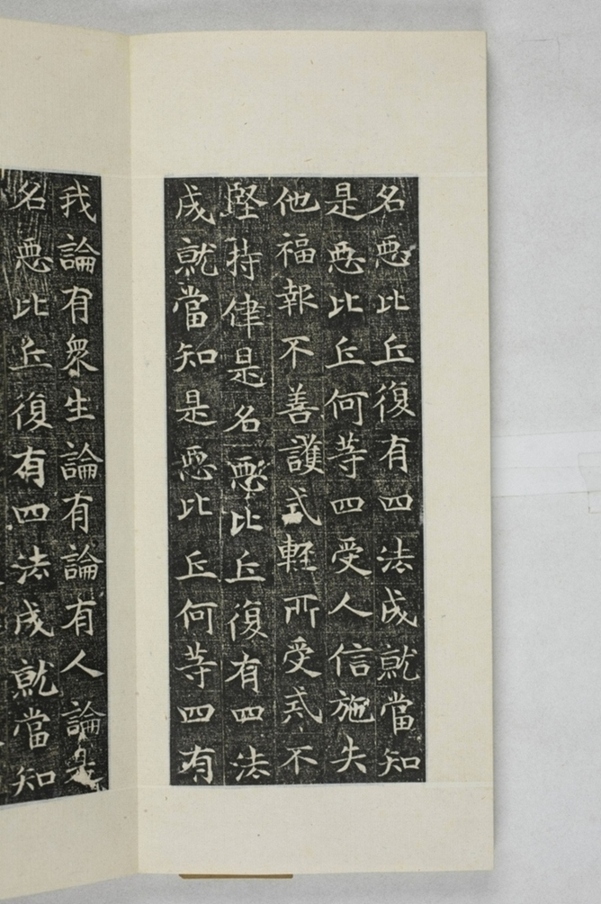 名惡比丘復有四法成就當知
是惡比丘何等四受人信施失
他福報不善護戒軽所受戒不
堅持律是名惡比丘復有四法
成就當知是惡比丘何等四有
我論有衆生論有論有人論是
名惡比丘復有四法成就當知